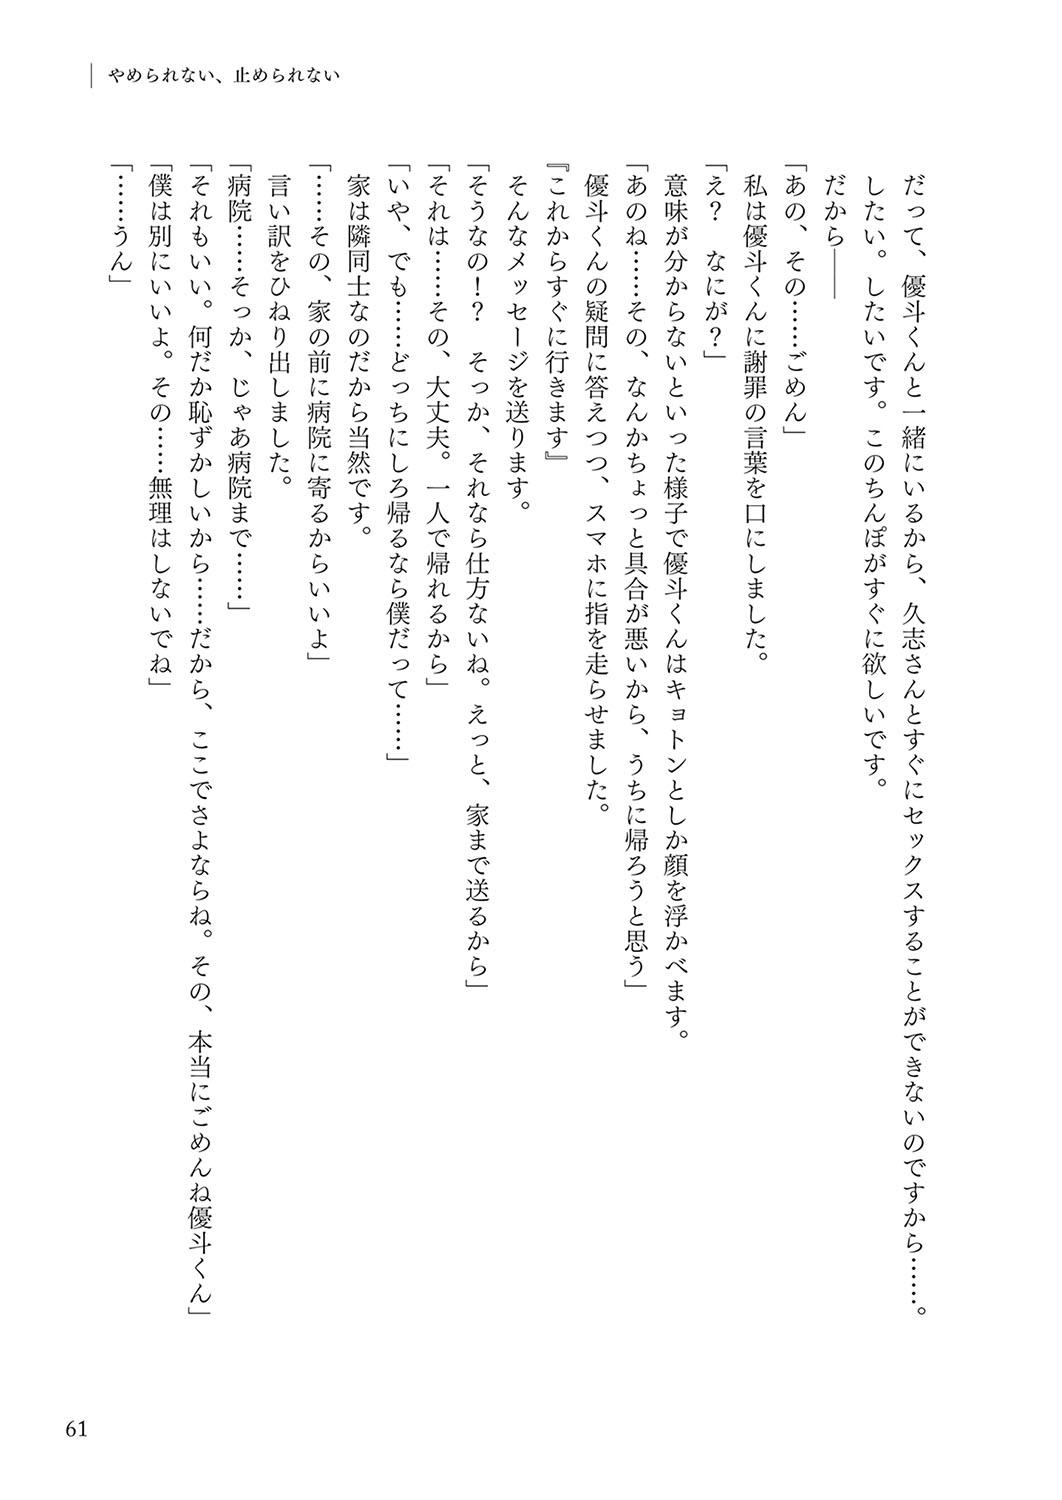 やめられない、止められない
だって、優斗くんと一緒にいるから、久志さんとすぐにセックスすることができないのですから……。
したい。したいです。このちんぽがすぐに欲しいです。
だから――
「あの、その……ごめん」
私は優斗くんに謝罪の言葉を口にしました。
「え？　なにが？」
意味が分からないといった様子で優斗くんはキョトンとしか顔を浮かべます。
「あのね……その、なんかちょっと具合が悪いから、うちに帰ろうと思う」
優斗くんの疑問に答えつつ、スマホに指を走らせました。
『これからすぐに行きます』
そんなメッセージを送ります。
「そうなの！？　そっか、それなら仕方ないね。えっと、家まで送るから」
「それは……その、大丈夫。一人で帰れるから」
「いや、でも……どっちにしろ帰るなら僕だって……」
家は隣同士なのだから当然です。
「……その、家の前に病院に寄るからいいよ」
言い訳をひねり出しました。
「病院……そっか、じゃあ病院まで……」
「それもいい。何だか恥ずかしいから……だから、ここでさよならね。その、本当にごめんね優斗くん」
「僕は別にいいよ。その……無理はしないでね」
「……うん」
61